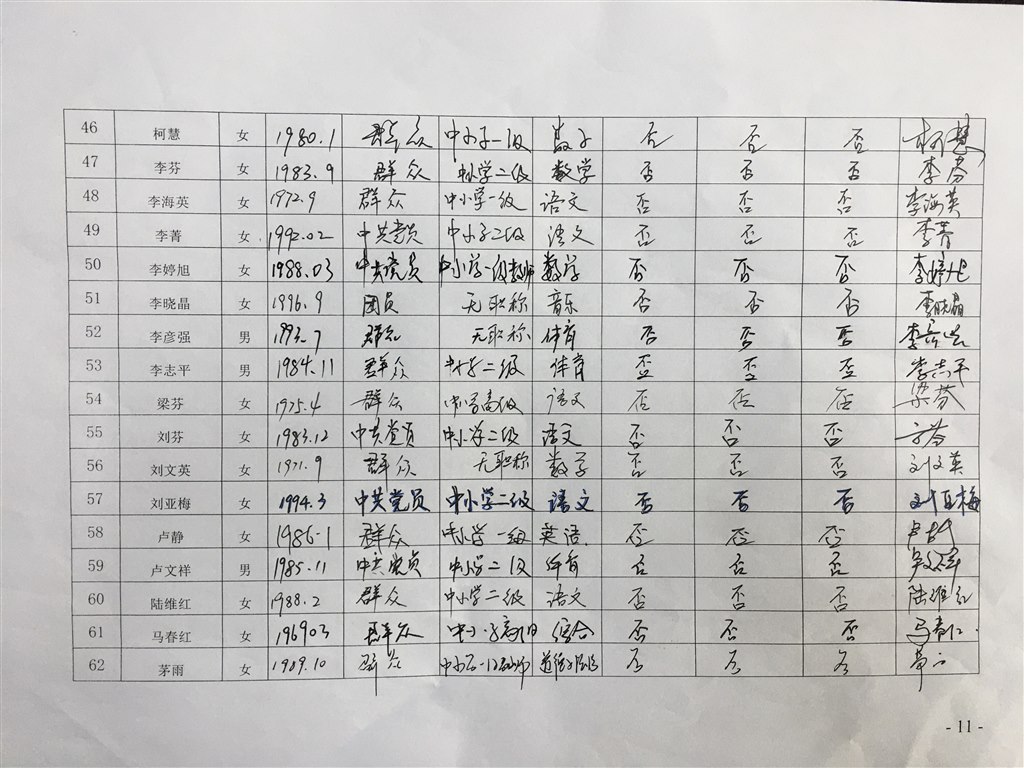 46 柯慧 女 1980.1 群众 中小学一级 数学 否 否 否 柯慧
47 李芬 女 1983.9 群众 中小学二级 数学 否 否 否 李芬
48 李海英 女 1972.9 群众 中小学一级 语文 否 否 否 李海英
49 李菁 女 1992.02 中共党员 中小学二级 语文 否 否 否 李菁
50 李婷旭 女 1988.03 中共党员 中小学一级教师 数学 否 否 否 李婷旭
51 李晓晶 女 1996.9 团员 无职称 音乐 否 否 否 李晓晶
52 李彦强 男 1993.7 群众 无职称 体育 否 否 否 李彦强
53 李志平 男 1984.11 群众 中小学二级 体育 否 否 否 李志平
54 梁芬 女 1975.4 群众 中小学高级 语文 否 否 否 梁芬
55 刘芬 女 1983.12 中共党员 中小学二级 语文 否 否 否 刘芬
56 刘文英 女 1971.9 群众 无职称 数学 否 否 否 刘文英
57 刘亚梅 女 1994.3 中共党员 中小学二级 语文 否 否 否 刘亚梅
58 卢静 女 1986.1 群众 中小学一级 英语 否 否 否 卢静
59 卢文祥 男 1985.11 中共党员 中小学二级 体育 否 否 否
60 陆维红 女 1988.2 群众 中小学二级 语文 否 否 否 陆维红
61 马春红 女 196903 群众 中小学高级 综合 否 否 否 马春红
62 茅雨 女 1989.10 群众 否 否 否 茅雨
- 11 -